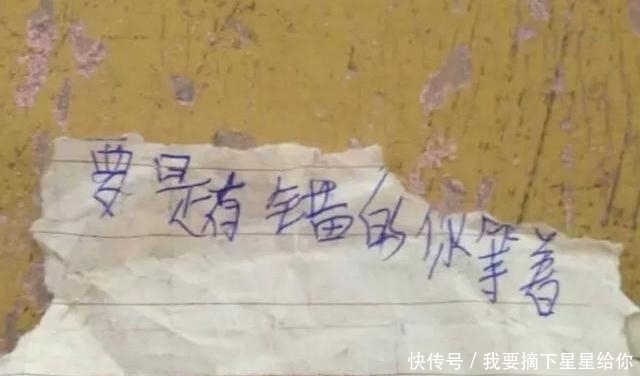 要是有错的你等着
快传号/我要摘下星星给你